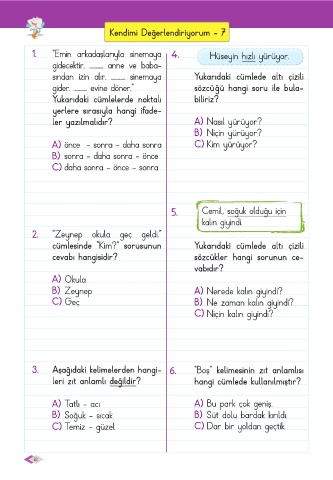 Kendimi Değerlendiriyorum - 7
1. "Emin arkadaşlarıyla sinemaya
gidecektir. ........ anne ve baba-
sından izin alır. ........ sinemaya
gider. ........ evine döner."
Yukarıdaki cümlelerde noktalı
yerlere sırasıyla hangi ifade-
ler yazılmalıdır?
A) önce - sonra - daha sonra
B) sonra - daha sonra - önce
C) daha sonra - önce - sonra
2. "Zeynep okula geç geldi."
cümlesinde "Kim?" sorusunun
cevabı hangisidir?
A) Okula
B) Zeynep
C) Geç
3. Aşağıdaki kelimelerden hangi-
leri zıt anlamlı değildir?
A) Tatlı - acı
B) Soğuk - sıcak
C) Temiz - güzel
4. Hüseyin hızlı yürüyor.
Yukarıdaki cümlede altı çizili
sözcüğü hangi soru ile bula-
biliriz?
A) Nasıl yürüyor?
B) Niçin yürüyor?
C) Kim yürüyor?
5. Cemil, soğuk olduğu için
kalın giyindi.
Yukarıdaki cümlede altı çizili
sözcükler hangi sorunun ce-
vabıdır?
A) Nerede kalın giyindi?
B) Ne zaman kalın giyindi?
C) Niçin kalın giyindi?
6. "Boş" kelimesinin zıt anlamlısı
hangi cümlede kullanılmıştır?
A) Bu park çok geniş.
B) Süt dolu bardak kırıldı.
C) Dar bir yoldan geçtik.